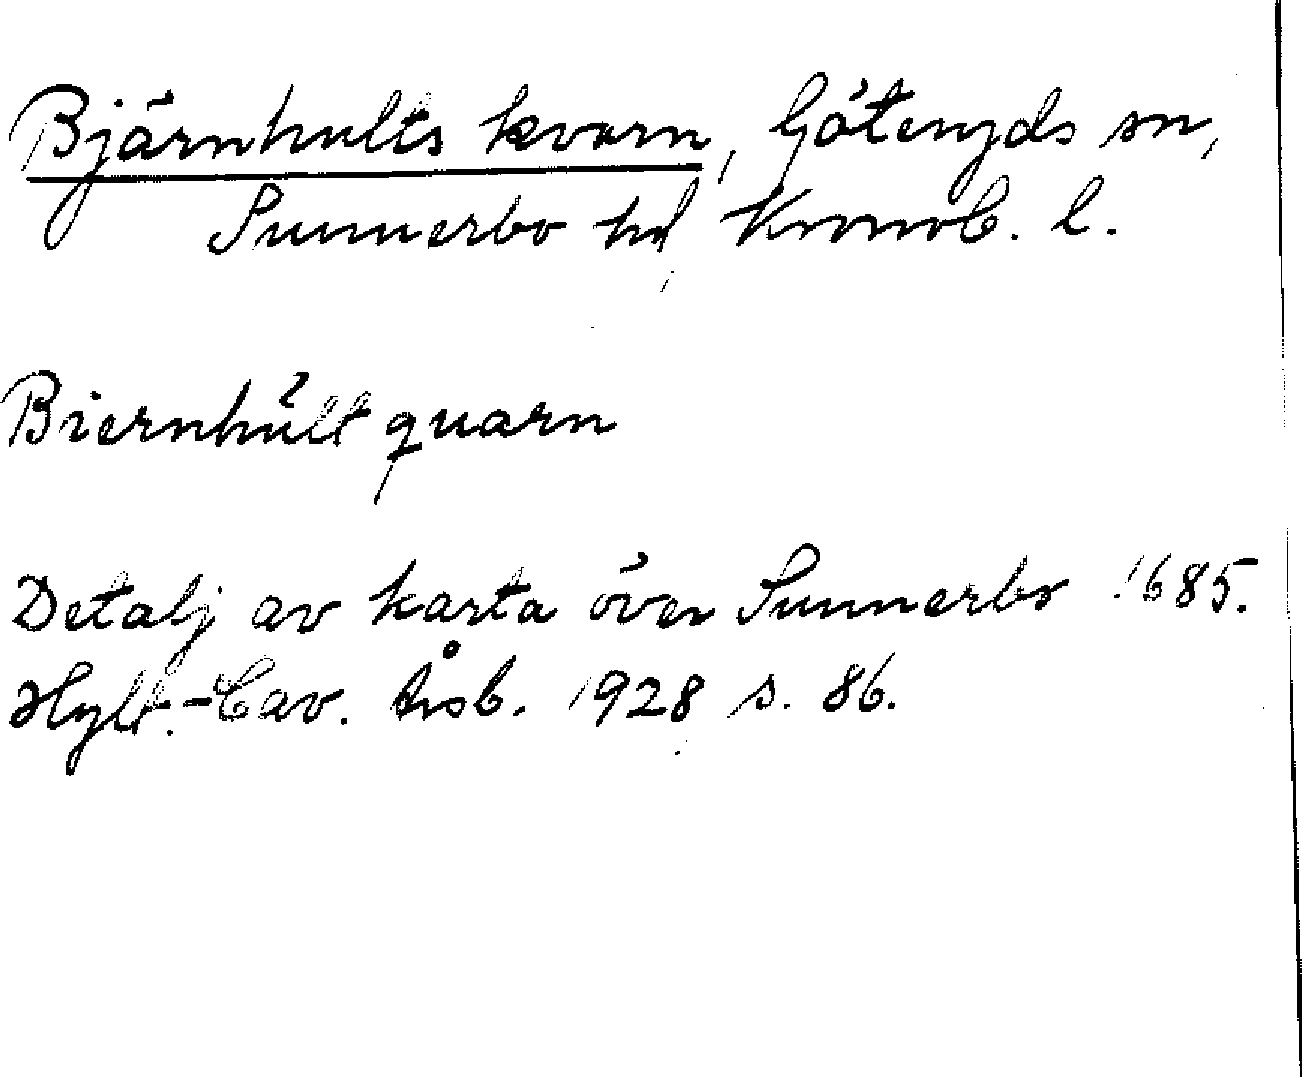 Bjärnhults kvarn, Göteryds sn,
Sunnerbo hd, Kronob. l.
Biernhült quarn
Detalj av karta över Sunnerbo 1685.
Hylt.-Cav. Årsb. 1928 s. 86.